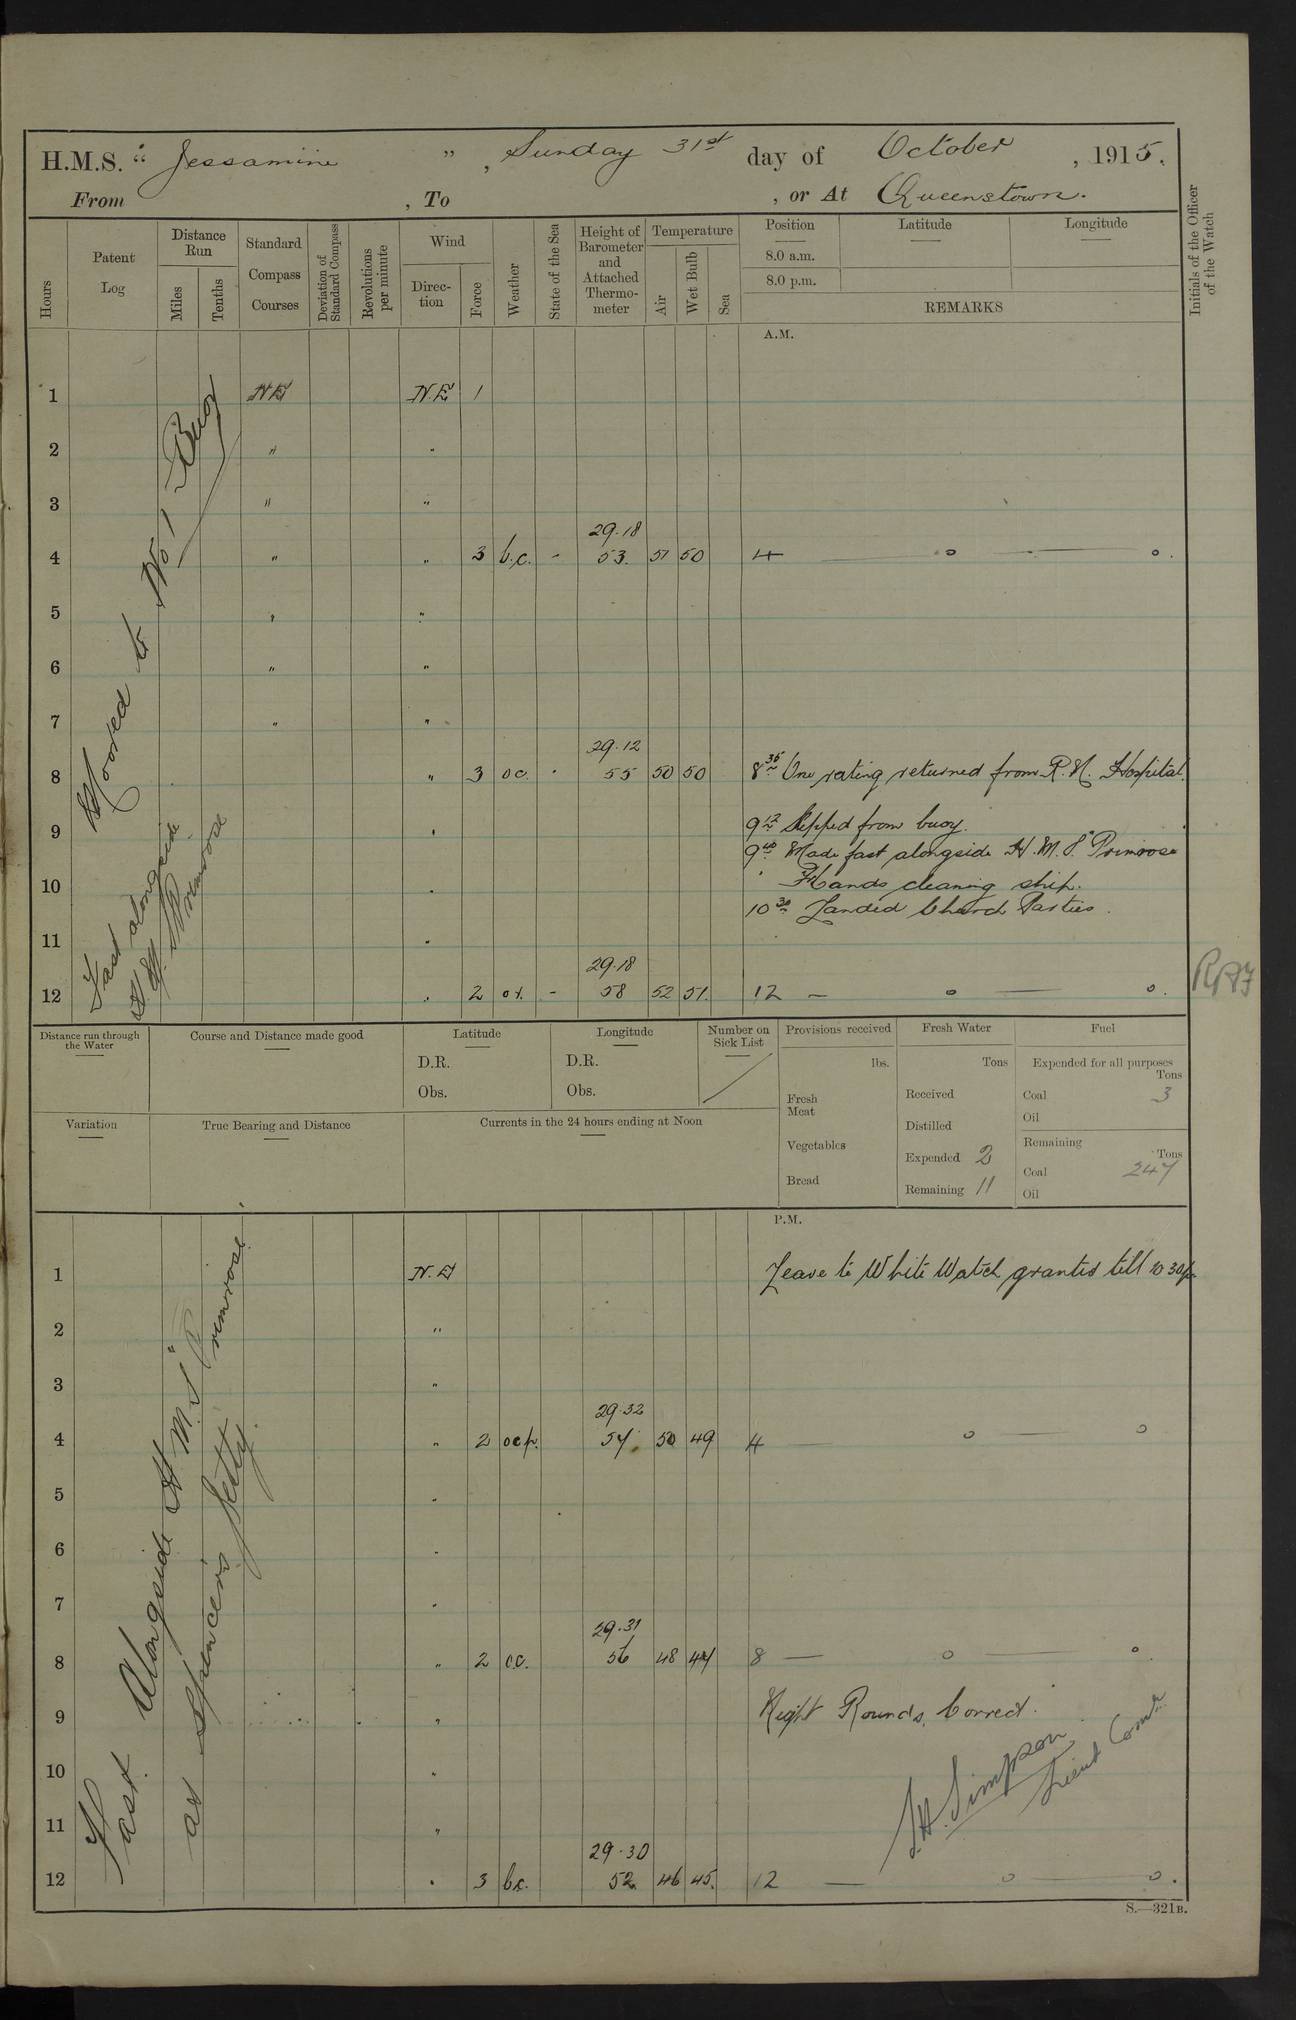 H.M.S. "Jessamine", Sunday 31st day of October, 1915.
From , To , or At Queenstown.
Hours
Patent Log
Distance Run
Miles
Tenths
Standard Compass Courses
Deviation of Standard Compass
Revolutions per minute
Wind
Direction
Force
Weather
State of the Sea
Height of Barometer and Attached Thermometer
Temperature
Air
Wet Bulb
Sea
Position
8.0 a.m.
8.0 p.m.
Latitude
Longitude
REMARKS
Initials of the Officer of the Watch
A.M.
Moored to No 1 Buoy
1 NE N.E 1
2 " "
3 " "
29.18
4 " " 3 b.c. - 53. 51 50 4 — o — o.
5 " "
6 " "
7 " "
29.12
8 " 3 oc. - 55 50 50 8 35 One rating returned from R.N. Hospital.
9 " 9 12 Slipped from buoy.
9 40 Made fast alongside H.M.S. "Primrose
10 " Hands cleaning ship.
10 30 Landed Church Parties.
11 "
29.18
12 " 2 - 58 52 51. 12 — o — o.
Fast alongside
H.M.S. Primrose
Distance run through the Water
Course and Distance made good
Latitude
D.R.
Obs.
Longitude
D.R.
Obs.
Number on Sick List
Provisions received
lbs.
Fresh Meat
Vegetables
Bread
Fresh Water
Tons
Received
Distilled
Expended 2
Remaining 11
Fuel
Expended for all purposes
Tons
Coal 3
Oil
Remaining
Tons
Coal 247
Oil
Variation
True Bearing and Distance
Currents in the 24 hours ending at Noon
P.M.
Fast Alongside H.M.S "Primrose"
at Spencers Jetty.
1 N.E Leave to White Watch granted till 10 30p
2 "
3 "
29.32
4 " 2 ocp. 57. 50 49 4 — o — o
5 "
6 "
7 "
29.31
8 " 2 o.c. 56 48 47 8 — o — o
9 " Night Rounds. Correct.
10 "
11 "
Simpson
Lieut Comdr
29.30
12 " 3 b.c. 52 46 45. 12 — o — o.
S.—321B.